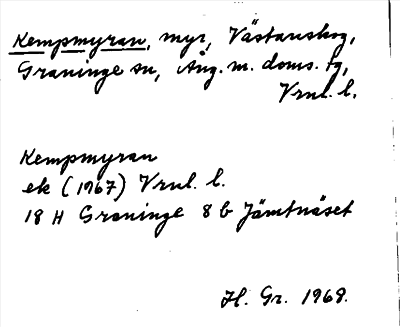 Kempmyran, myr, Västanskog,
Graninge sn, Ång. m. doms. tg,
Vrnl. l.
Kempmyran
ek (1967) Vrnl. l.
18 H Graninge 8 b Jämtnäset
H. Gr. 1969.